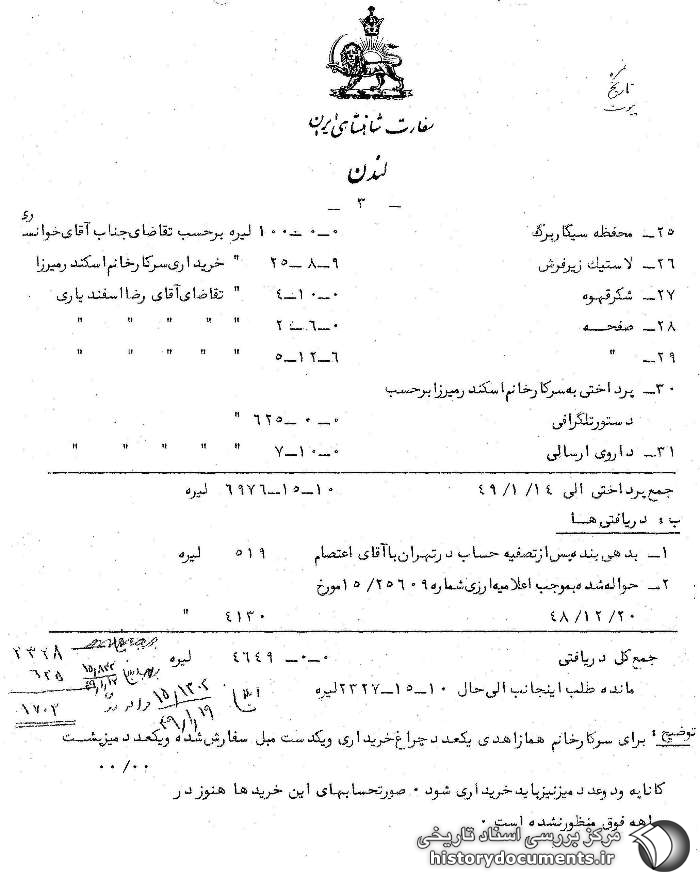 نمره
تاریخ
پیوست
سفارت شاهنشاهی ایران
لندن
ــ ۳ ــ
۲۵ــ محفظه سیگاربرگ ۰ــ۰ــ۱۰۰ لیره برحسب تقاضای جناب آقای خوانسـ ری
۲۶ــ لاستیك زیرفرش ۹ــ۸ــ۲۵ " خریداری سرکارخانم اسکندرمیرزا
۲۷ــ شکرقهوه ۰ــ۱۰ــ۴ " تقاضای آقای رضا اسفندیاری
۲۸ــ صفحـه ۰ــ۶ــ۲ " " " " "
۲۹ــ " ۶ــ۱۲ــ۵ " " " " "
۳۰ــ پرداختی به سرکارخانم اسکندرمیرزا برحسب
دستورتلگرافی ۰ــ۰ــ۶۲۵ "
۳۱ــ داروی ارسالی ۰ــ۱۰ــ۷ " " " " "
جمع پرداختی الی ۴۹/۱/۱۴ ۱۰ــ۱۵ــ۶۹۷۶ لیره
ب : دریافتی هـا
۱ــ بدهی بنده پس از تصفیه حساب درتهران با آقای اعتصام ۵۱۹ لیره
۲ــ حواله شده بموجب اعلامیه ارزی شماره ۱۵/۲۵۶۰۹ مورخ
۴۸/۱۲/۲۰ ۴۱۳۰ "
جمع کل دریافتی ۰ــ۰ــ۴۶۴۹ لیره
مانده طلب اینجانب الی حال ۱۰ــ۱۵ــ۲۳۲۷ لیره
۲۳۲۸
۶۲۵
۱۷۰۳
۴۹/۱/۱۹
توضیح : برای سرکارخانم همازاهدی یکعدد چراغ خریداری ویکدست مبل سفارش شده ویکعدد میزپشت
۰۰/۰۰
کاناپه ودوعدد میزنیزباید خریداری شود ۰ صورتحسابهای این خریدها هنوز در
اهه فوق منظورنشده است ۰
مرکز بررسی اسناد تاریخی
historydocuments.ir